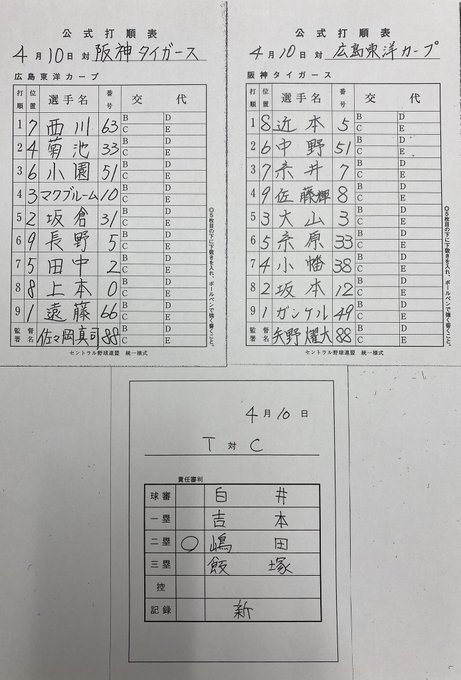 公式打順表
4月10日対阪神タイガース
広島東洋カープ
打順 位置 選手名 番号 交代
1 7 西川 63 B D C E
2 4 菊池 33 B D C E
3 6 小園 51 B D C E
4 3 マクブルーム 10 B D C E
5 2 坂倉 31 B D C E
6 9 長野 5 B D C E
7 5 田中 2 B D C E
8 8 上本 0 B D C E
9 1 遠藤 66 B D C E
監督署名 佐々岡真司 88 B D C E
◎5枚目の下に下敷きを入れ、ボールペンで強く書くこと。
セントラル野球連盟 統一様式
公式打順表
4月10日対広島東洋カープ
阪神タイガース
打順 位置 選手名 番号 交代
1 8 近本 5 B D C E
2 6 中野 51 B D C E
3 7 糸井 7 B D C E
4 9 佐藤輝 8 B D C E
5 3 大山 3 B D C E
6 5 糸原 33 B D C E
7 4 小幡 38 B D C E
8 2 坂本 12 B D C E
9 1 ガンケル 49 B D C E
監督署名 矢野燿大 88 B D C E
◎5枚目の下に下敷きを入れ、ボールペンで強く書くこと。
セントラル野球連盟 統一様式
4月10日
T対C
責任審判
球審 白井
一塁 吉本
二塁 ○ 嶋田
三塁 飯塚
控
記録 新